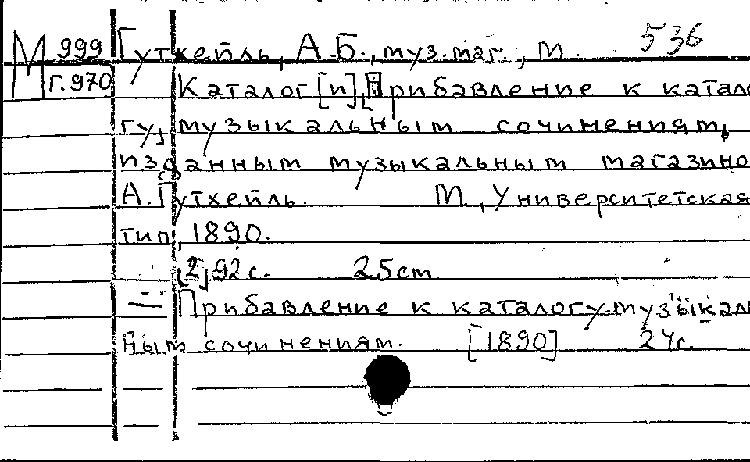 М 999 Гутхейль, А.Б., муз.маг., М. 536
Г.970 Каталог [и] Прибавление к катало
гу, музыкальным сочинениям,
изданным музыкальным магазино
А.Гутхейль. М., Университетская
тип, 1890.
[2], 92 с. 25 cm
— Прибавление к каталогу музыкаль
ным сочинениям. [1890] 24с.